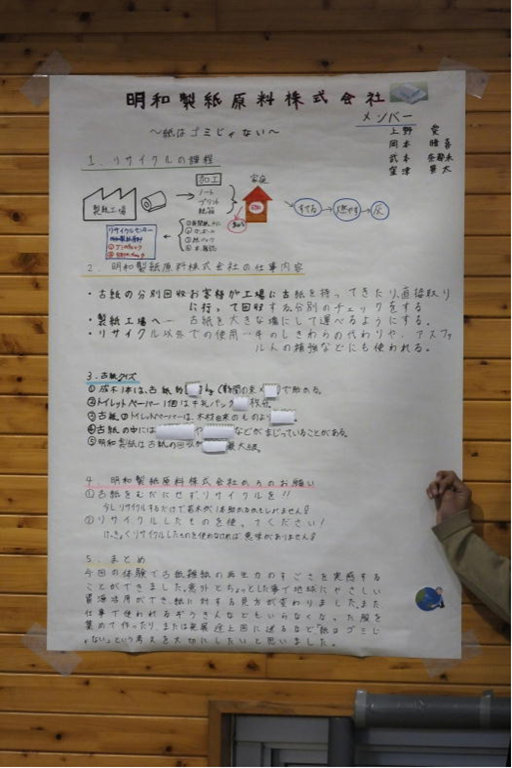 明和製紙原料株式会社
メンバー
～紙はゴミじゃない～
上野 愛
岡本 晴喜
武本 奈都永
窪津 昊太
1.リサイクルの過程
製紙工場
加工
ノート
プリント
家庭
すてる
燃やす
灰
リサイクルセンター
2.明和製紙原料株式会社の仕事内容
・古紙の分別回収お客様が工場に古紙を持ってきたり、直接取り
に行って回収する。分別のチェックをする
・製紙工場へ― 古紙を大きな塊にして運べるようにする。
・リサイクル以外での使用―牛のしきわらの代わりや、アスファ
ルトの補強などにも使われる。
3.古紙クイズ
①成木1本は、古紙約 kg(新聞の束× )で助かる。
②トイレットペーパー1個は牛乳パック 枚分。
③古紙のトイレットペーパーは、木材由来のものより
④古紙の中には や などがまじっていることがある。
⑤明和製紙は古紙の回収が 最大級。
4.明和製紙原料株式会社からのお願い
①古紙をむだにせずリサイクルを!!
②リサイクルしたものを使ってください!
けっきょくリサイクルしたものを使わなければ意味がありません!
5.まとめ
今回の体験で古紙雑紙の再生力のすごさを実感する
ことができました。意外とちょっとした事で地球にやさしい
資源活用ができ、紙に対する見方が変わりました。また
仕事で使われるぞうきんなどもいらなくなった服を
集めて作ったり、または発展途上国に送るなど「紙はゴミじ
ゃない」という考えを大切にしたいと思いました。